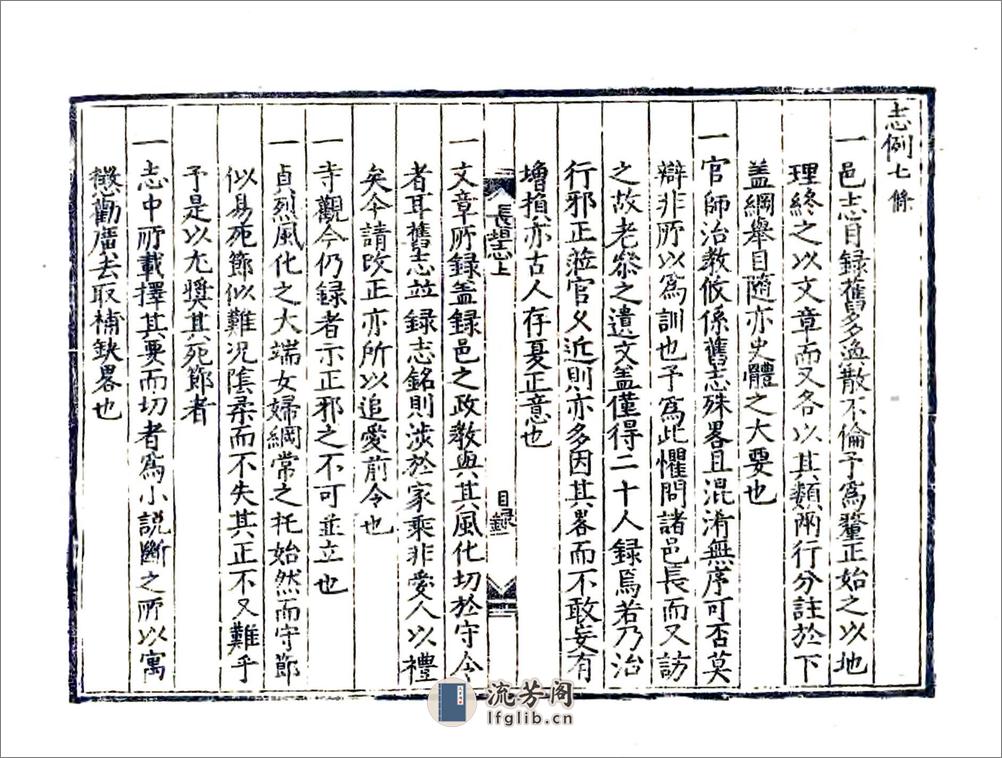 志例七條
一邑志目録舊多渙散不倫予爲釐正始之以地
理終之以文章而又各以其類兩行分註於下
盖綱舉目隨亦史體之大要也
一官師治教攸係舊志殊畧且混淆無序可否莫
辯非所以爲訓也予爲此懼問諸邑長而又訪
之故老叅之遺文盖僅得二十人録焉若乃治
行邪正蒞官久近則亦多因其畧而不敢妄有
增損亦古人存夏正意也
長志上
目録
一文章所録盖録邑之政教與其風化切於守令
者耳舊志並録志銘則涉於家乘非愛人以禮
矣今請改正亦所以追愛前令也
一寺觀今仍録者示正邪之不可並立也
一貞烈風化之大端女婦綱常之托始然而守節
似易死節似難况陰柔而不失其正不又難乎
予是以尤奬其死節者
一志中所載擇其要而切者爲小説斷之所以寓
懲勸廣去取補缺畧也
流芳阁
lfglib.cn